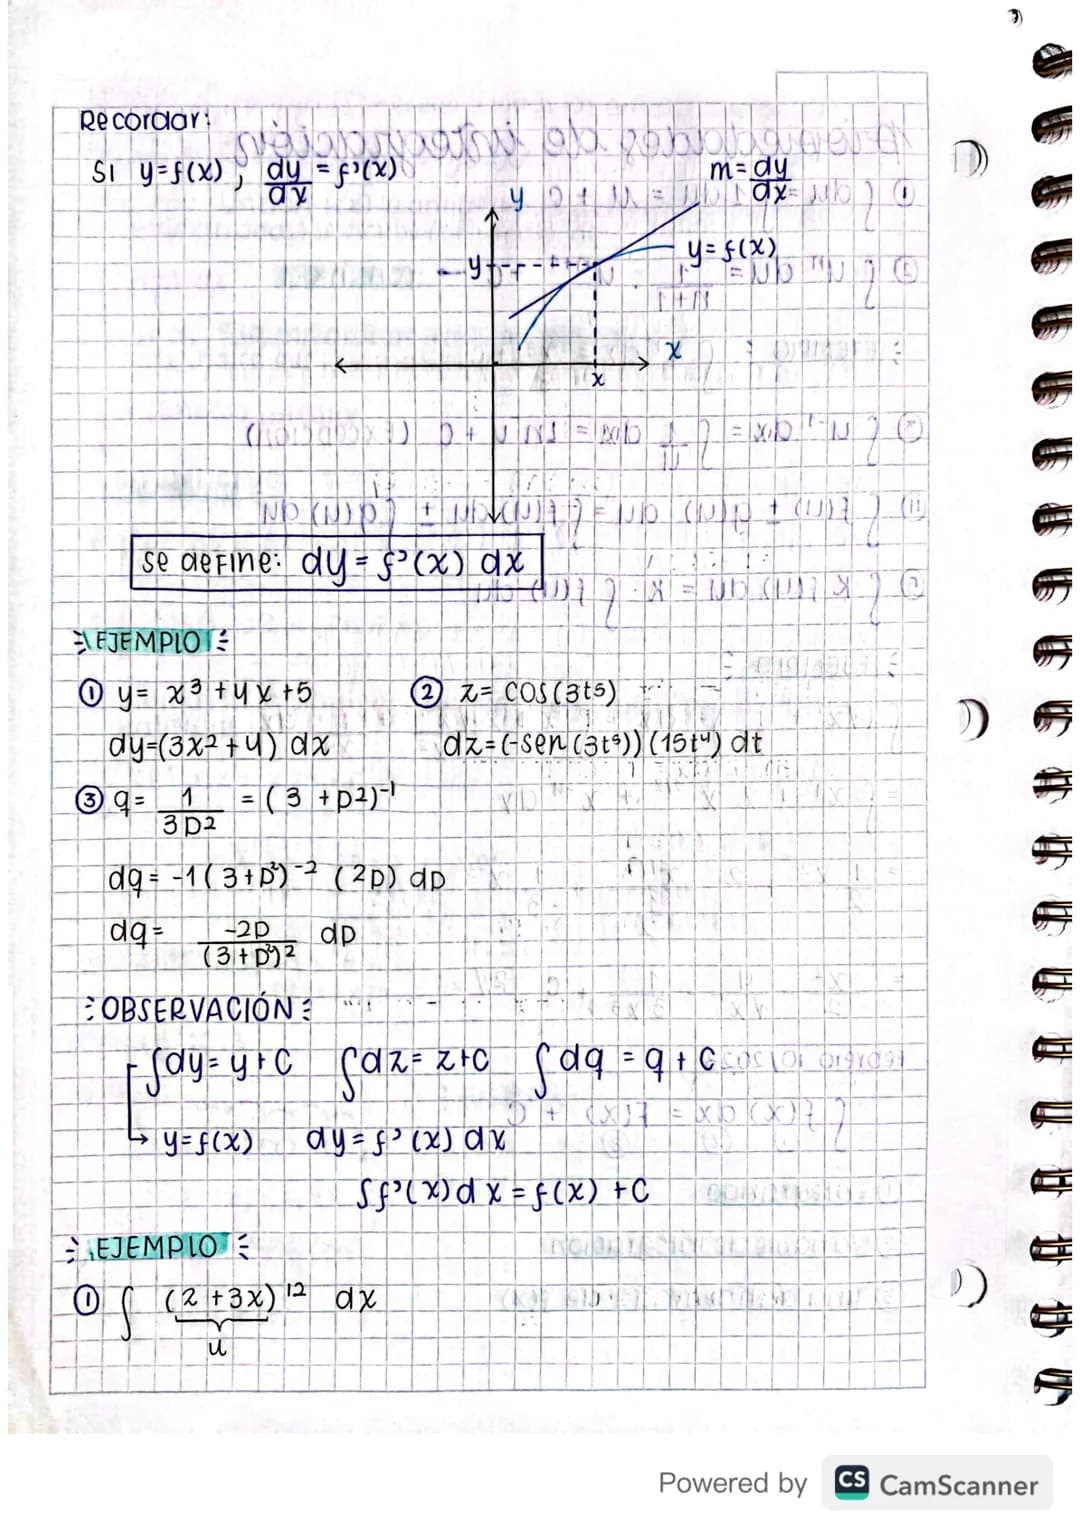 Recordar:
Si y=f(x) , dy/dx = f'(x)
m = dy/dx
y
y
y=f(x)
x
x
se define: dy = f'(x) dx
EJEMPLO
① y= x³ +4x +5
② z= cos(3t⁵)
dy=(3x²+4) dx
dz=(-sen(3t⁵))(15t⁴) dt
③ q= 1/3p² = (3 +p²)⁻¹
dq= -1(3+p²)⁻² (2p) dp
dq= -2p/(3+p²)² dp
OBSERVACIÓN
∫dy= y+C ∫dz= z+C ∫dq = q + C
↳ y=f(x) dy= f'(x) dx
∫f'(x)dx = f(x) +C
EJEMPLO
① ∫ (2+3x)¹² dx
u
Powered by CS CamScanner